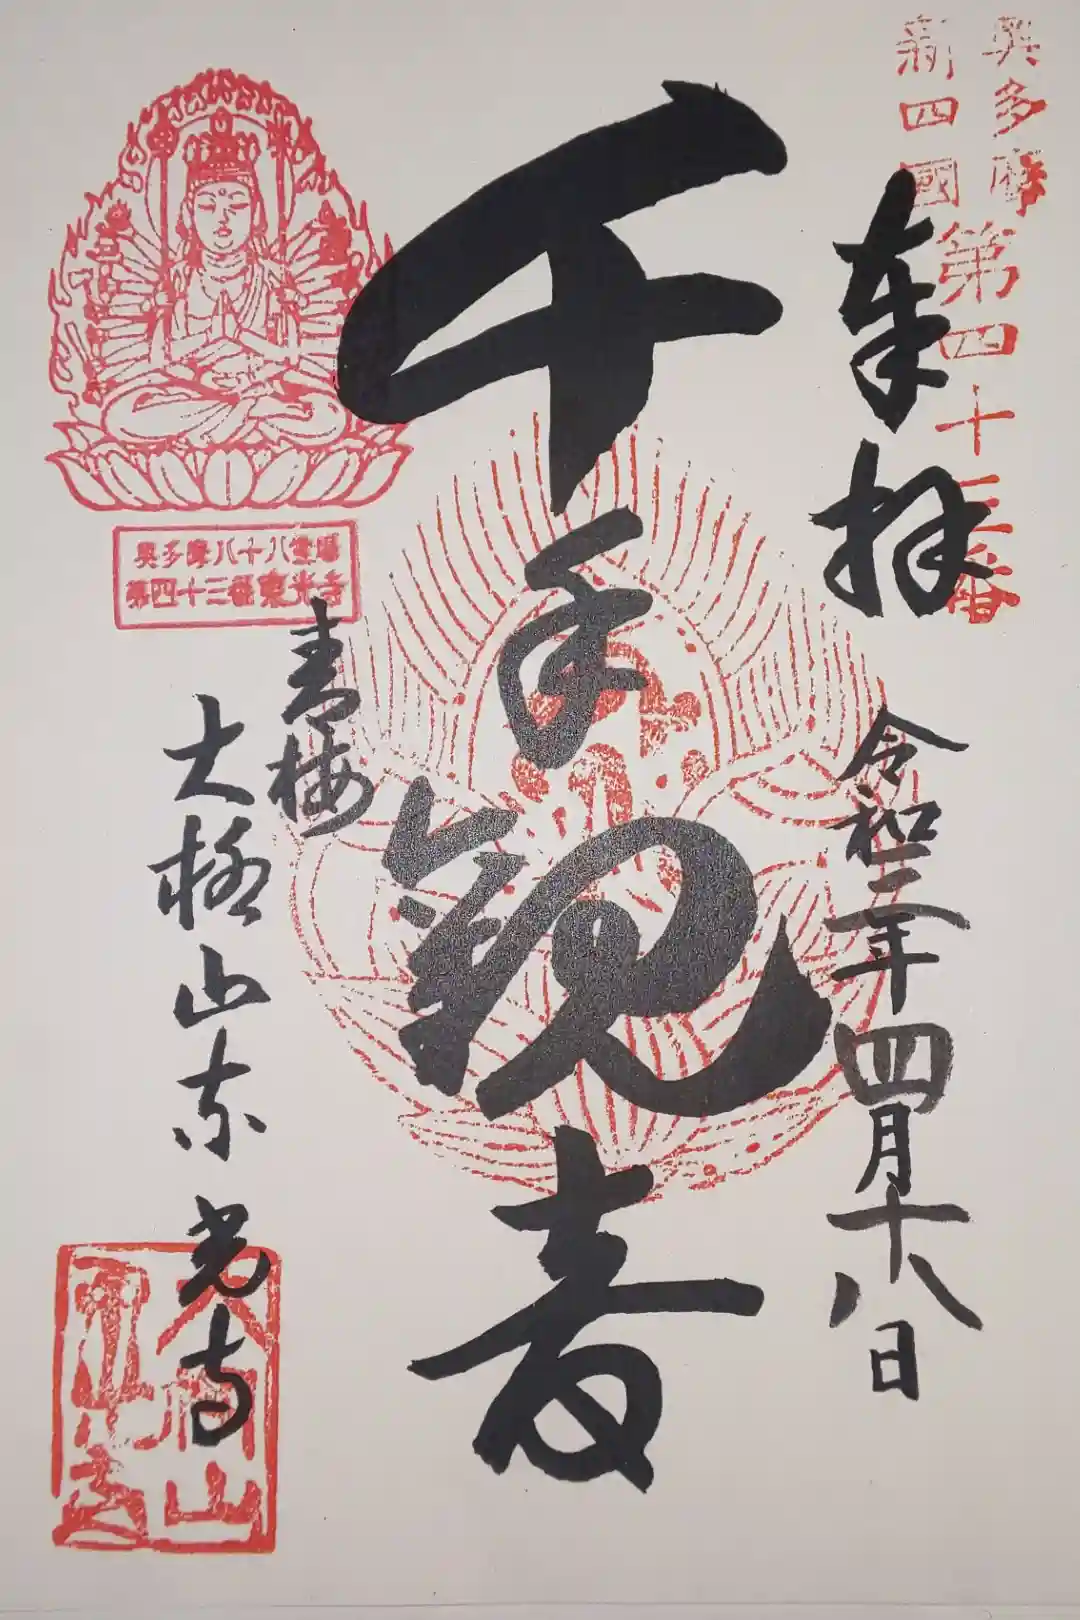 奥多摩
新四國
第四十三番
奉拝
令和三年四月十八日
千手観音
奥多摩八十八霊場
第四十三番東光寺
青梅
大極山東光寺